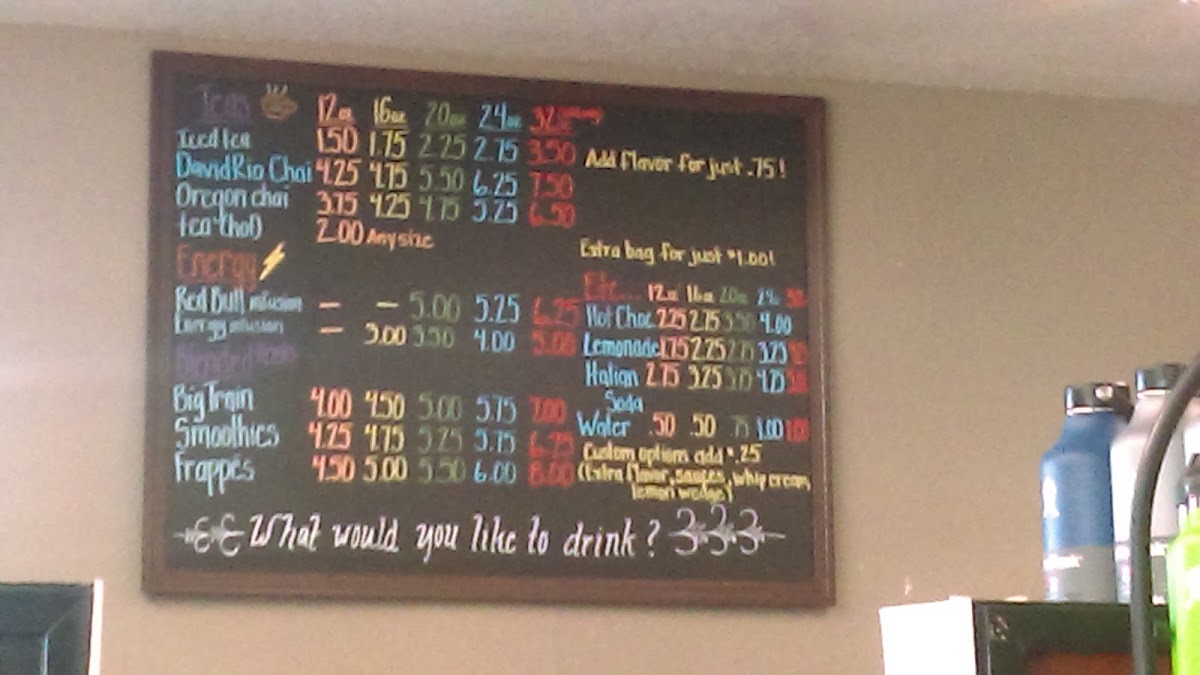 Teas 12oz 16oz 20oz 24oz 32
Iced tea 1.50 1.75 2.25 2.75 3.50
David Rio Chai 4.25 4.75 5.50 6.25 7.50
Oregon chai 3.75 4.25 4.75 5.25 6.50
tea (hot) 2.00 Any size
Energy
Red Bull infusion – – 5.00 5.25 6.25
Energy infusion – 3.00 3.50 4.00 5.00
Blended
Big Train 4.00 4.50 5.00 5.75 7.00
Smoothies 4.25 4.75 5.25 5.75 6.75
Frappés 4.50 5.00 5.50 6.00 8.00
Add flavor for just .75!
Extra bag for just $1.00!
Etc... 12oz 16oz 20oz 24oz
Hot Choc 2.25 2.75 3.50 4.00
Lemonade 1.75 2.25 2.75 3.25
Italian 2.75 3.25 3.75 4.25
Soda
Water .50 .50 .75 1.00 1.00
Custom options add $.25
(Extra flavor, sauces, whip cream,
lemon wedge)
What would you like to drink?